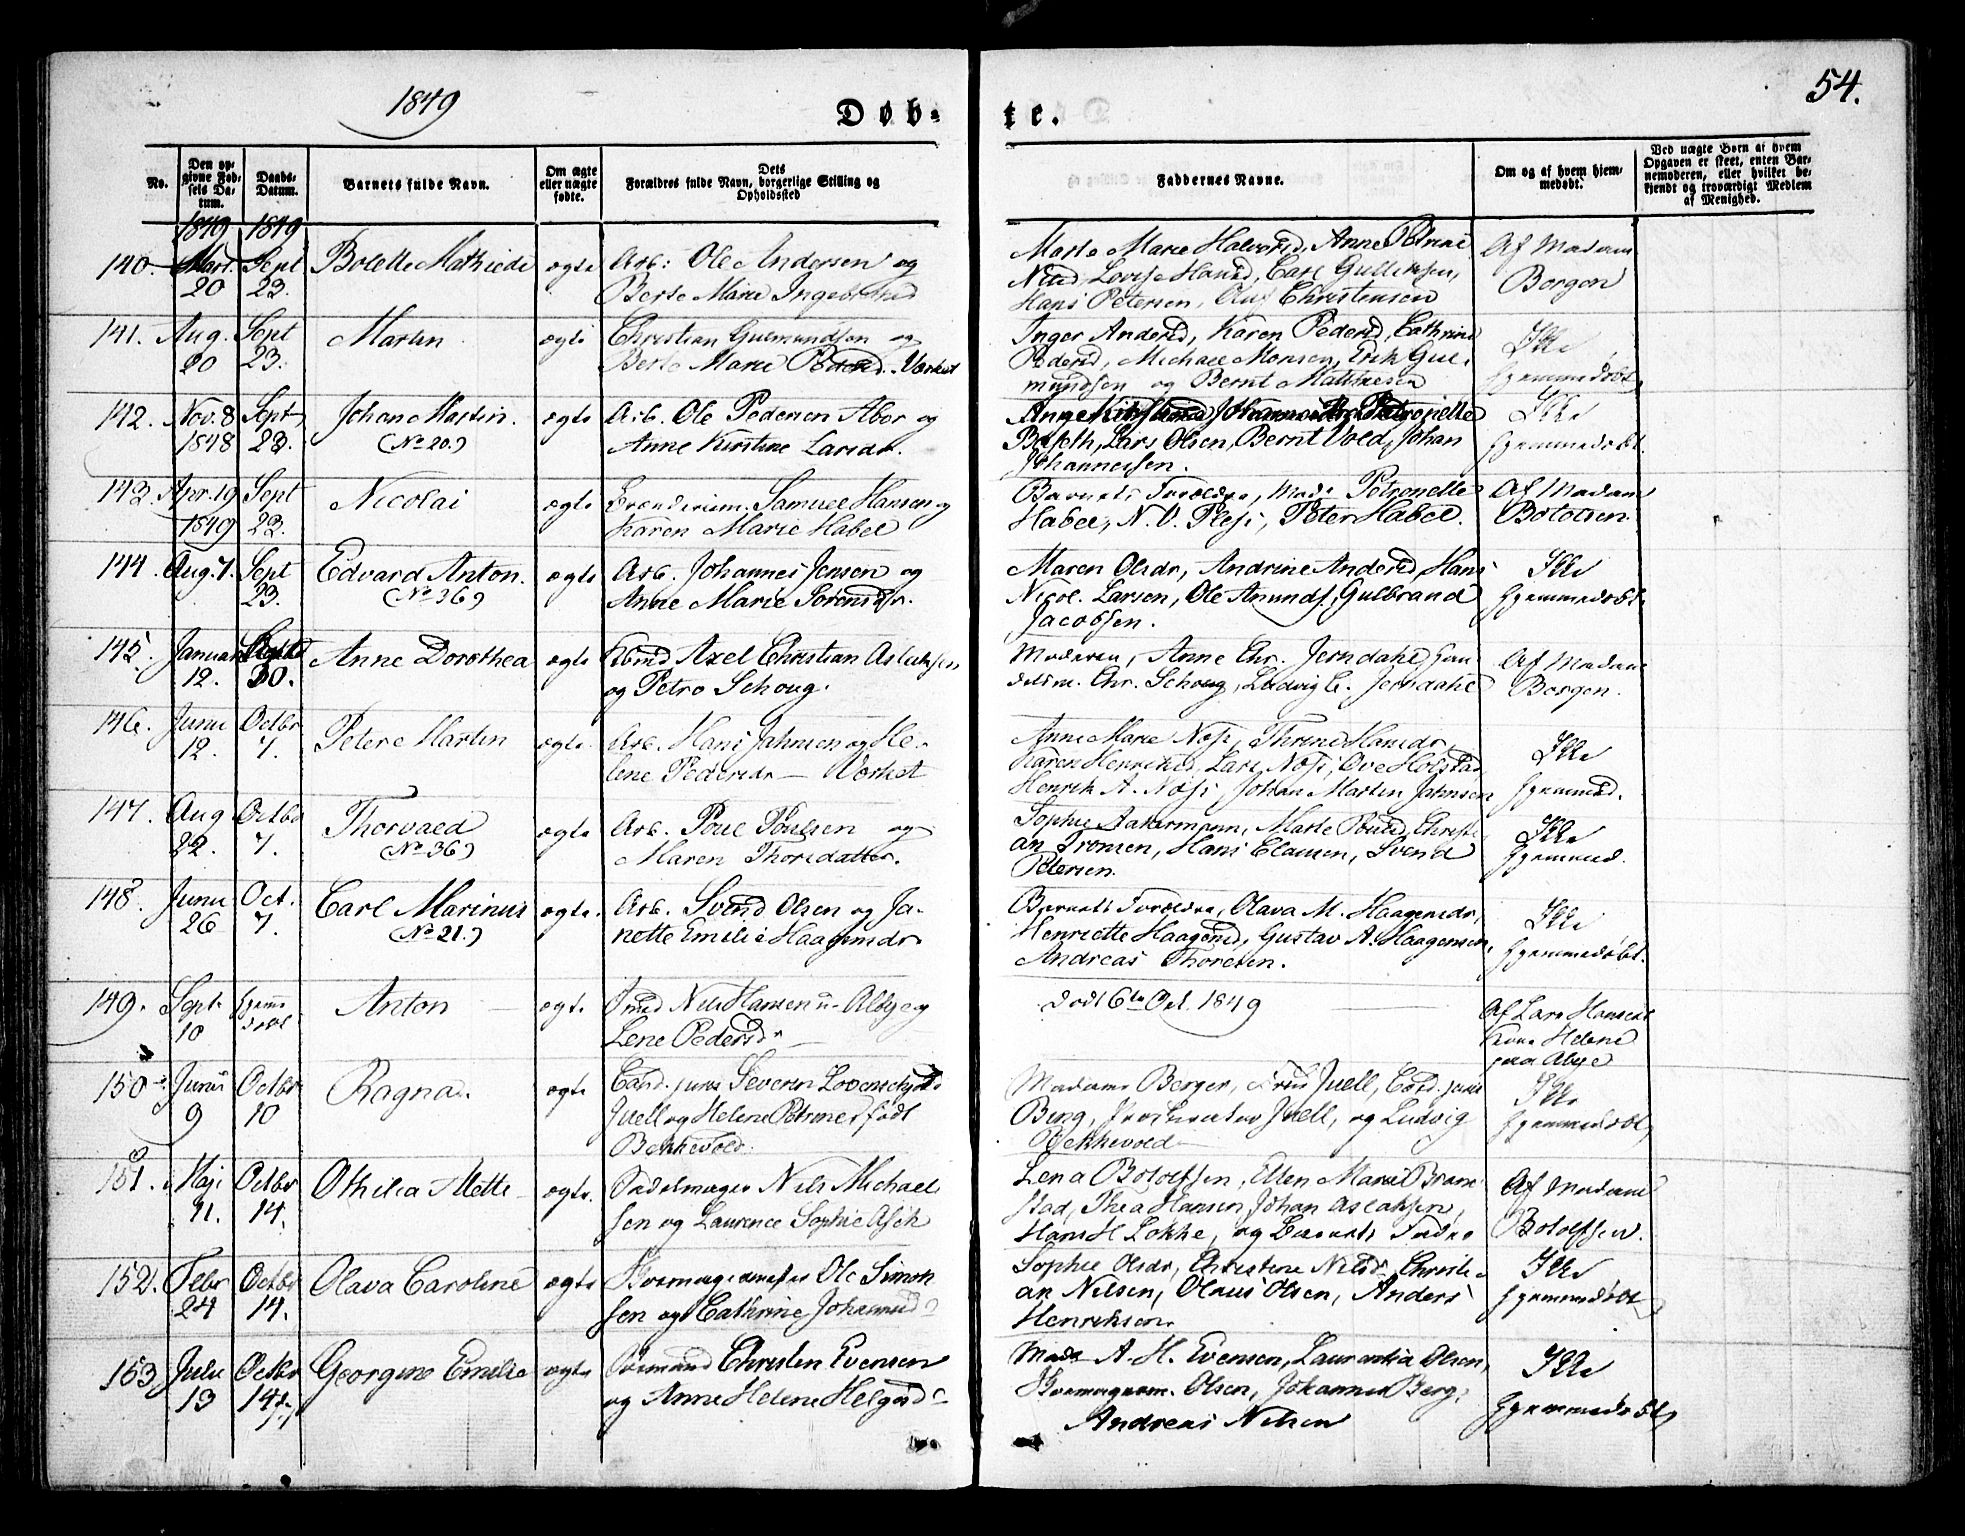 1849
54.
Døb-
te.
No.
Den op-
givne Fød-
sels Da-
tum.
Daabs-
Datum.
Barnets fulde Navn.
Om ægte
eller uægte
fødte.
Dets
Forældres fulde Navn, borgerlige Stilling og
Opholdssted
Faddernes Navne.
Om og af hvem hjem-
medøbt.
Ved uægte Børn af hvem
Opgaven er skeet, enten Bar-
nemoderen, eller hvilket be-
kjendt og troværdigt Medlem
af Menighed.
1849 1849
140. Mart. 20 Sept 23. Bolette Mathilde ægte Arb: Ole Andersen og
Berte Marie
Marte Marie Halvorsd, Anne Petrine
Nilsd Lovise Hansd, Carl Gulliksen,
Hans Petersen, Christensen
Af Madam
Borgen
141. Aug. 20 Sept 23. Martin ægte Christian Gulmundsen og
Berte Marie Pedersd. Værket
Inger Andersd, Karen Pedersd, Cathrine
Pedersd, Michael Monsen, Erik Gul-
mundsen og Bernt Mathiesen
Ikke
hjemmedøbt,
142. Nov. 8 1848 Sept 23. Johan Martin. (No 20.) ægte Arb. Ole Pedersen Aboe og
Anne Kirstine Larsdr.
Lars Olsen, Bernt Vold, Johan
Johannessen.
Ikke
hjemmedøbt.
143. Apr. 19 1849 Sept 23. Nicolai ægte Samuel Hansen og
Karen Marie Habel
Barnets Forældre, Mad. Petronelle
Habel, N. V. Peter Habel.
Af Madam
Botolfsen.
144. Aug. 7. Sept 23. Edvard Anton. (No 36) ægte Arb. Johannes Jensen og
Anne Marie Sørensdr.
Maren Olsdr, Andrine Andersd, Hans
Nicol. Larsen, Ole Amunds. Gulbrand
Jacobsen.
Ikke
hjemmedøbt.
145. Januar 12. 30. Anne Dorothea ægte Axel Christian Aslaksen
og Petro Schoug.
Moderen, Anne Chr. Jerndahl, Han-
delsm. Chr. Schoug, Ludvig C. Jerndahl
Af Madam
Borgen.
146. Juni 12. Octbr 7. Peter Martin ægte. Arb. Hans Jahnsen og He-
lene Pedersdr — Værket
Anne Marie Næss, Thrine Hansdr,
Karen Henriksd, Lars Næss, Ove Holstad
Henrik A. Næss, Johan Martin Jahnsen
Ikke
hjemmed.
147. Aug 22. Octbr 7. Thorvald (No 36) ægte Arb. Poul Poulsen og
Maren Thorsdatter.
Sophie Aakermann, Marte Poulsd, Christi-
an Tronsen, Hans Clausen, Svend
Petersen.
Ikke
hjemmed.
148. Juni 26 Oct. 7. Carl Marinus (No 21.) ægte. Arb. Svend Olsen og Ja-
nette Emilie Haagensdr.
Barnets Forældre, Olava M. Haagensdr,
Henriette Haagensd, Gustav A. Haagensen,
Andreas Thoresen.
Ikke
hjemmedøbt.
149. Sept. 10 hjemme døbt Anton ægte. Nils Hansen Albye og
Lene Pedersdr
død 6te Oct. 1849
Af Lars Hansens
Kone Helene
paa Albye
150 Juni 9 Octbr 10 Ragna. ægte Cand. juris Severin Løvenskjold
Juell og Helene Petrine født
Bekkevold.
Madame Berger, Frue Juell, Cand. juris
Bing, Procurator Juell, og Ludvig
Bekkevold
Ikke
hjemmedøbt,
151. Maji 11. Octbr 14. Othilia Mette ægte. Sadelmager Nils Michael-
sen og Laurence Sophie Asch
Lena Botolfsen, Ellen Marie Bram-
stad, Thea Hansen, Johan Aslaksen,
Hans H. Løkke, og Barnets Fader
Af Madame
Botolfsen.
152. Febr 24 Octbr 14. Olava Caroline ægte Ole Simon-
sen og Cathrine Johannesd
Sophie Olsdr, Christine Nilsdr, Christi-
an Nilsen, Olaus Olsen, Anders
Henriksen.
Ikke
hjemmedøbt
153 Juli 13 Octbr 14 Georgine Emilie ægte Christen Evensen
og Anne Helene Helgesd
Mad. A. H. Evensen, Laurentia Olsen,
Olsen, Johannes Berg,
Andreas Nilsen
Ikke
hjemmedøbt,